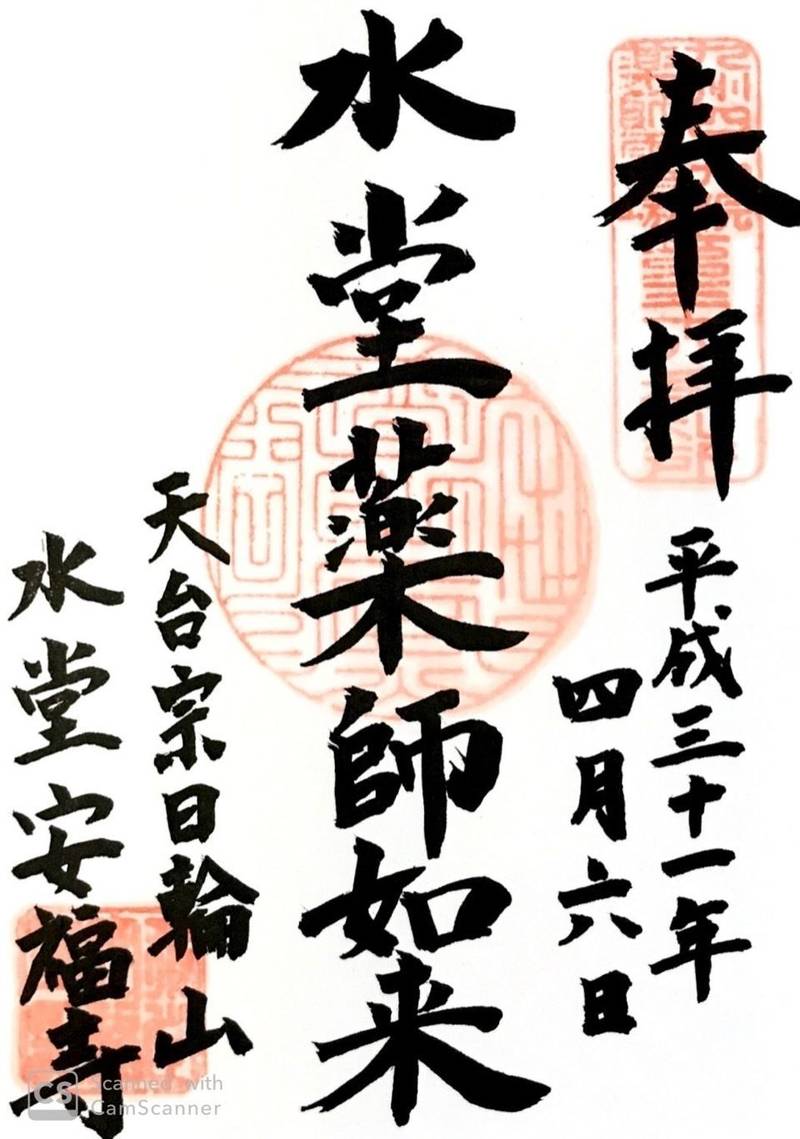 奉拝
平成三十一年
四月六日
水堂薬師如来
天台宗日輪山
水堂安福寺
CS Scanned with
CamScanner